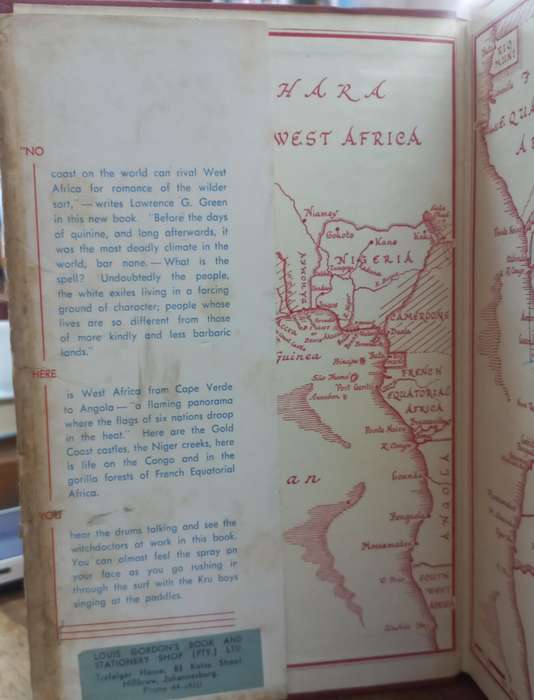 "NO
coast on the world can rival West
Africa for romance of the wilder
sort," — writes Lawrence G. Green
in this new book. "Before the days
of quinine, and long afterwards, it
was the most deadly climate in the
world, bar none. — What is the
spell? Undoubtedly the people,
the white exiles living in a forcing
ground of character; people whose
lives are so different from those
of more kindly and less barbaric
lands."
HERE
is West Africa from Cape Verde
to Angola — "a flaming panorama
where the flags of six nations droop
in the heat." Here are the Gold
Coast castles, the Niger creeks, here
is life on the Congo and in the
gorilla forests of French Equatorial
Africa.
YOU
hear the drums talking and see the
witchdoctors at work in this book.
You can almost feel the spray on
your face as you go rushing in
through the surf with the Kru boys
singing at the paddles.
LOUIS GORDON'S BOOK AND
STATIONERY SHOP (PTY.) LTD.
Trafalgar House, Kotze Street
Hillbrow, Johannesburg.
Phone
HARA
WEST AFRICA
Niamey
Sokoto
Kano
NIGERIA
DAHOMEY
Accra
CAMEROONS
Duala
Guinea
Principe
Bata
São Thomé
Port Gentil
Annobon
FRENCH
EQUATORIAL
AFRICA
Pointe Noire
R. Congo
an
Loanda
ANGOLA
Benguela
Mossamedes
SOUTH
WEST
AFRICA
RIO
MUNI